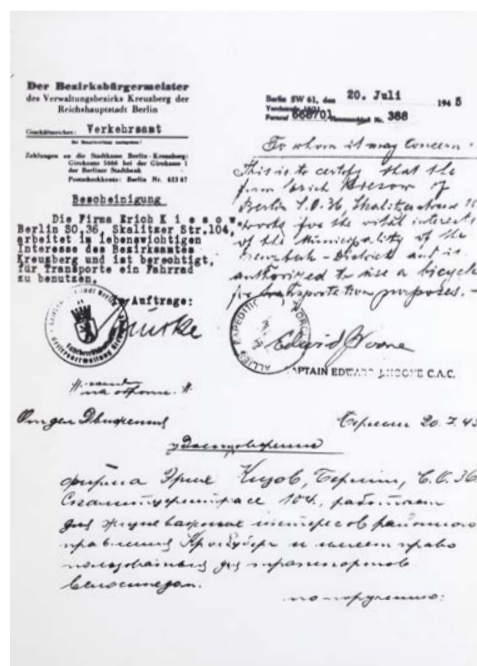 Der Bezirksbürgermeister
des Verwaltungsbezirks Kreuzberg der
Reichshauptstadt Berlin
Geschäftszeichen: Verkehrsamt
Zahlungen an die Stadtkasse Berlin-Kreuzberg:
Girokonto 5666 bei der Girokasse 1
der Berliner Stadtbank
Postscheckkonto: Berlin Nr. 613 67
Bescheinigung
Die Firma Erich Kiesow,
Berlin SO.36, Skalitzer Str.104,
arbeitet im lebenswichtigen
Interesse des Bezirksamtes
Kreuzberg und ist berechtigt,
für Transporte ein Fahrrad
zu benutzen.
Im Auftrage:
Berlin SW 61, den 20. Juli 1945
Fernruf 668701 Nr. 388
To whom it may concern:
This is to certify that the
firm Erich Kiesow of
Berlin S.O.36, Skalitzerstrasse
works for the vital interests
of the Municipality of the
Kreuzberg-District and is
authorized to use a bicycle
for transportation purposes.
ALLIED EXPEDITIO
CAPTAIN EDWARD C.A.C.
Отдел Движения
Берлин 20.7.45
удостоверение
фирма Эрих Кизов, Берлин, С.О.36
104, работает
для жизненоважных интересов районного
правления Кройцберг и имеет право
пользоваться для транспортов
велосипедом.
по поручению: